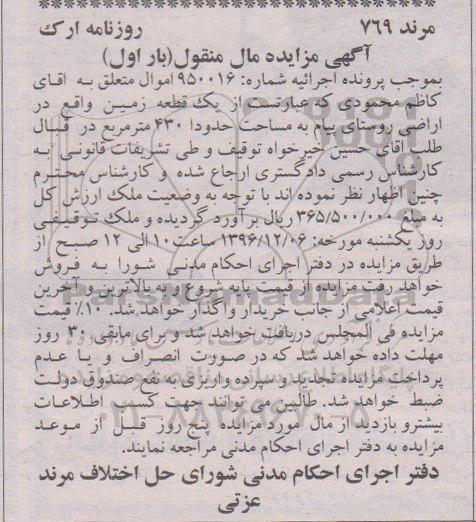 مرند ۷۶۹ روزنامه ارک
آگهی مزایده مال منقول(بار اول)
بموجب پرونده اجرائیه شماره: ۹۵۰۰۱۶ اموال متعلق به اقای
کاظم محمودی که عبارتست از یک قطعه زمین واقع در
اراضی روستای پیام به مساحت حدودا ۴۳۰ مترمربع در قبال
طلب اقای حسین خیرخواه توقیف و طی تشریفات قانونی به
کارشناس رسمی دادگستری ارجاع شده و کارشناس محترم
چنین اظهار نظر نموده اند با توجه به وضعیت ملک ارزش کل
به مبلغ ۳۶۵/۵۰۰/۰۰۰ ریال برآورد گردیده و ملک توقیفی
روز یکشنبه مورحه: ۱۳۹۶/۱۲/۰۶ ساعت۱۰ الی ۱۲ صبح از
طریق مزایده در دفتر اجرای احکام مدنی شورا به فروش
خواهد رفت مزایده از قیمت پایه شروع و به بالاترین و آخرین
قیمت اعلامی از جانب خریدار واگذار خواهد شد. ۱۰٪ قیمت
مزایده فی المجلس دریافت خواهد شد و برای مابقی ۳۰ روز
مهلت داده خواهد شد که در صورت انصراف و یا عدم
پرداخت مزایده تجدید و سپرده واریزی به نفع صندوق دولت
ضبط خواهد شد. طالبین می توانند جهت کسب اطلاعات
بیشترو بازدید از مال مورد مزایده پنج روز قبل از موعد
مزایده به دفتر اجرای احکام مدنی مراجعه نمایند.
دفتر اجرای احکام مدنی شورای حل اختلاف مرند
عزتی
ParsNamadData
۰۲۱-۸۸۳۴۹۶۷۰-۵